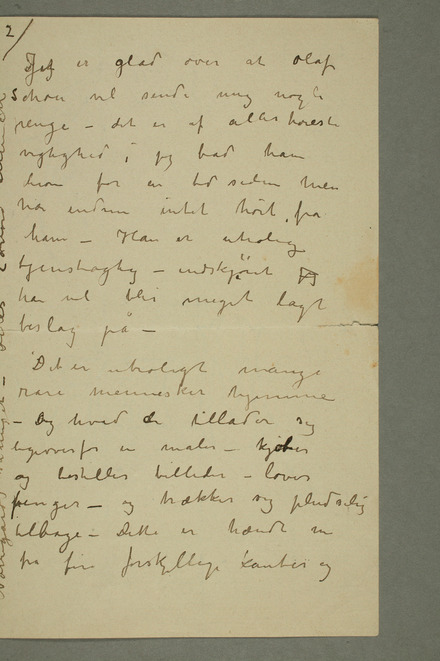 2/
Jeg er glad over at Olaf
Schou vil sende mig nogle
penge – det er af allerstørste
vigtighed; jeg bad ham
derom for en tid siden men
har endnu intet hørt fra
ham – Han er utrolig
tjenstagtig – indskjönt jeg
han vel blir meget lagt
beslag på –
Det er utroligt mange
rare mennesker hjemme
– Og hvad de tillader sig
ligeoverfor en maler – kjøber
og bestiller billeder – lover
penger – og trækker sig pludselig
tilbage – Dette er hændt nu
fra fire forskjellige kanter og